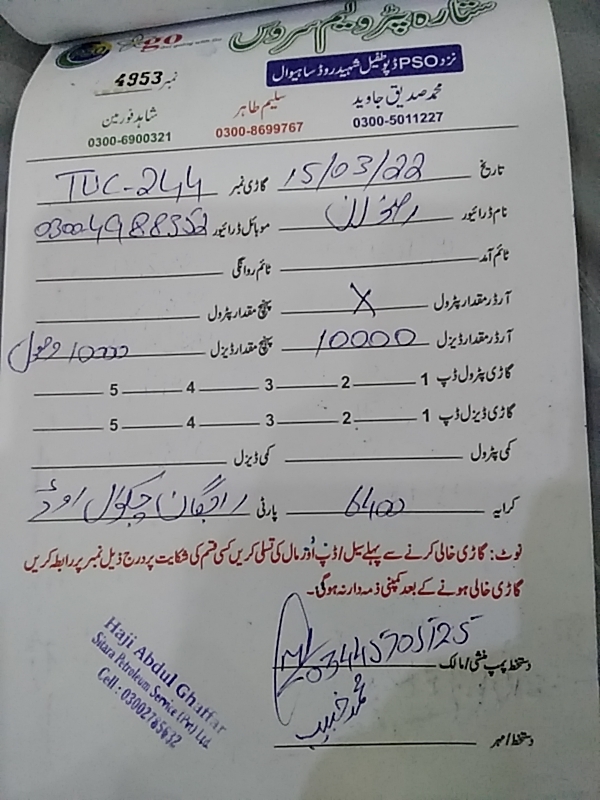 ستارہ پٹرولیم سروس
go
نزد PSO ڈپو طفیل شہید روڈ ساہیوال
نمبر 4953
محمد صدیق جاوید
0300-5011227
سلیم طاہر
0300-8699767
شاہد فورمین
0300-6900321
تاریخ 15/03/22 گاڑی نمبر TUC-244
نام ڈرائیور رضوان موبائل ڈرائیور 03004988352
ٹائم آمد ٹائم روانگی
آرڈر مقدار پٹرول X پہنچ مقدار پٹرول
آرڈر مقدار ڈیزل 10000 پہنچ مقدار ڈیزل 10000 وصول
گاڑی پٹرول ڈپ 1 2 3 4 5
گاڑی ڈیزل ڈپ 1 2 3 4 5
کمی پٹرول کمی ڈیزل
کرایہ 6400 پارٹی چکوال
نوٹ: گاڑی خالی کرنے سے پہلے سیل / ڈپ اور مال کی تسلی کریں کسی قسم کی شکایت پر درج ذیل نمبر پر رابطہ کریں
گاڑی خالی ہونے کے بعد کمپنی ذمہ دار نہ ہوگی۔
دستخط پمپ منشی / مالک 03445705125
محمد خبیب
دستخط / مہر
Haji Abdul Ghaffar
Sitara Petroleum Service (Pvt) Ltd.
Cell : 03002785632